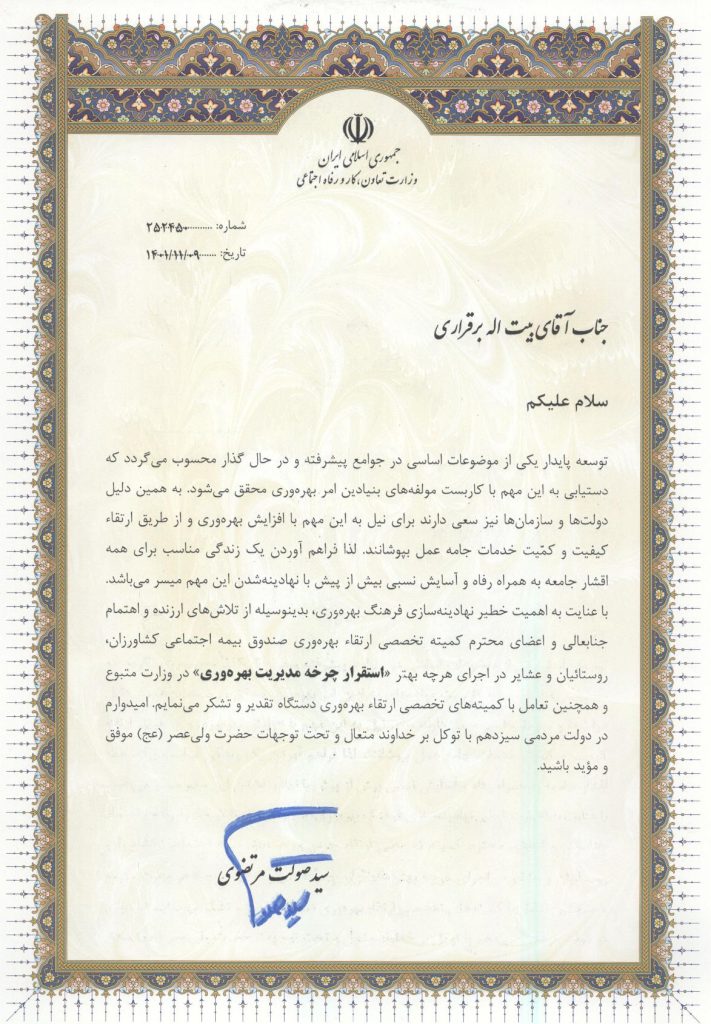 جمهوری اسلامی ایران
وزارت تعاون، کار و رفاه اجتماعی
شماره: ۲۵۲۴۵۰
تاریخ: ۱۴۰۱/۱۱/۰۹
جناب آقای بیت اله برقراری
سلام علیکم
توسعه پایدار یکی از موضوعات اساسی در جوامع پیشرفته و در حال گذار محسوب می‌گردد که
دستیابی به این مهم با کاربست مولفه‌های بنیادین امر بهره‌وری محقق می‌شود. به همین دلیل
دولت‌ها و سازمان‌ها نیز سعی دارند برای نیل به این مهم با افزایش بهره‌وری و از طریق ارتقاء
کیفیت و کمّیت خدمات جامه عمل بپوشانند. لذا فراهم آوردن یک زندگی مناسب برای همه
اقشار جامعه به همراه رفاه و آسایش نسبی بیش از پیش با نهادینه‌شدن این مهم میسر می‌باشد.
با عنایت به اهمیت خطیر نهادینه‌سازی فرهنگ بهره‌وری، بدینوسیله از تلاش‌های ارزنده و اهتمام
جنابعالی و اعضای محترم کمیته تخصصی ارتقاء بهره‌وری صندوق بیمه اجتماعی کشاورزان،
روستائیان و عشایر در اجرای هرچه بهتر «استقرار چرخه مدیریت بهره‌وری» در وزارت متبوع
و همچنین تعامل با کمیته‌های تخصصی ارتقاء بهره‌وری دستگاه تقدیر و تشکر می‌نمایم. امیدوارم
در دولت مردمی سیزدهم با توکل بر خداوند متعال و تحت توجهات حضرت ولی‌عصر (عج) موفق
و مؤید باشید.
سید صولت مرتضوی